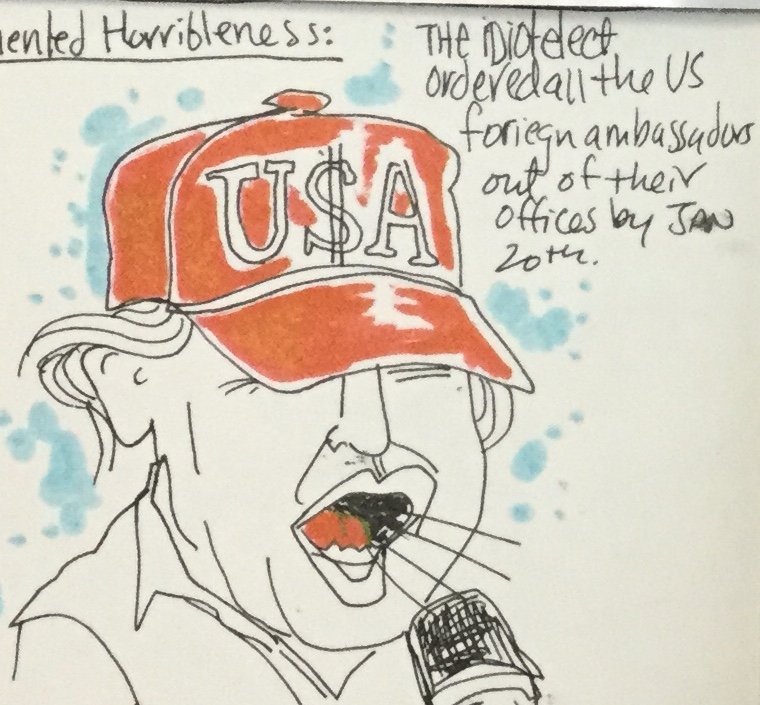 ented Horribleness:
THE iDiotelect
orderedall the US
foriegn ambassadors
out of their
offices by JAN
20th.
U$A